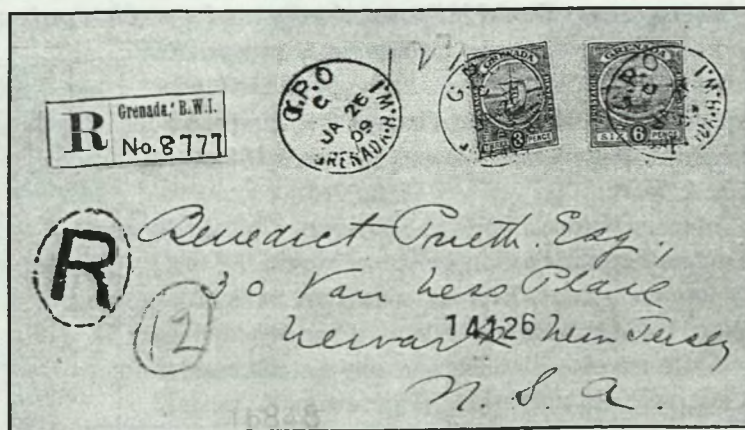 Grenada, B.W.I.
R No. 8777
G.P.O
C
JA 26
09
GRENADA.B.W.I
GRENADA
3 PENCE
GRENADA
SIX 6 PENCE
G.P.O
C
R
Benedict Prieth. Esq.,
30 Van Ness Place
Newark New Jersey
14126
U. S. A.
12